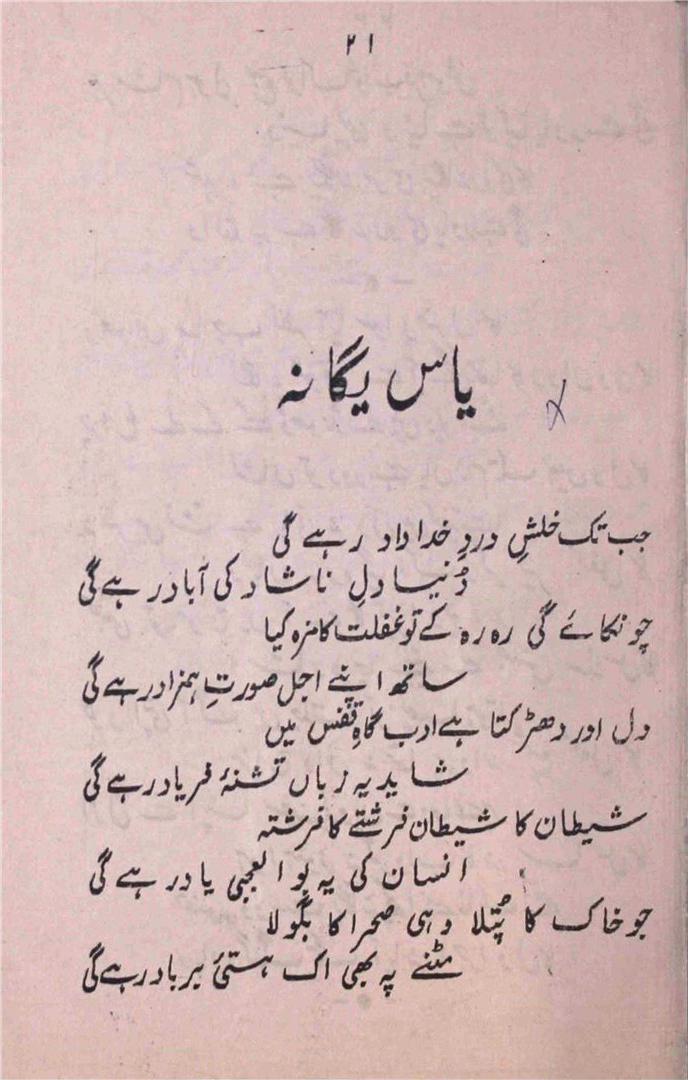 ۲۱
یاس یگانہ
جب تک خلشِ دردِ خداداد رہے گی
دُنیا دلِ ناشاد کی آباد رہے گی
چونکائے گی رہ رہ کے تو غفلت کا مزہ کیا
ساتھ اپنے اجل صورتِ ہمزاد رہے گی
دل اور دھڑکتا ہے ادب گاہِ قفس میں
شاید یہ زباں تشنۂ فریاد رہے گی
شیطان کا شیطان فرشتے کا فرشتہ
انسان کی یہ بوالعجبی یاد رہے گی
جو خاک کا پُتلا وہی صحرا کا بگولا
مٹنے پہ بھی اک ہستیٔ برباد رہے گی